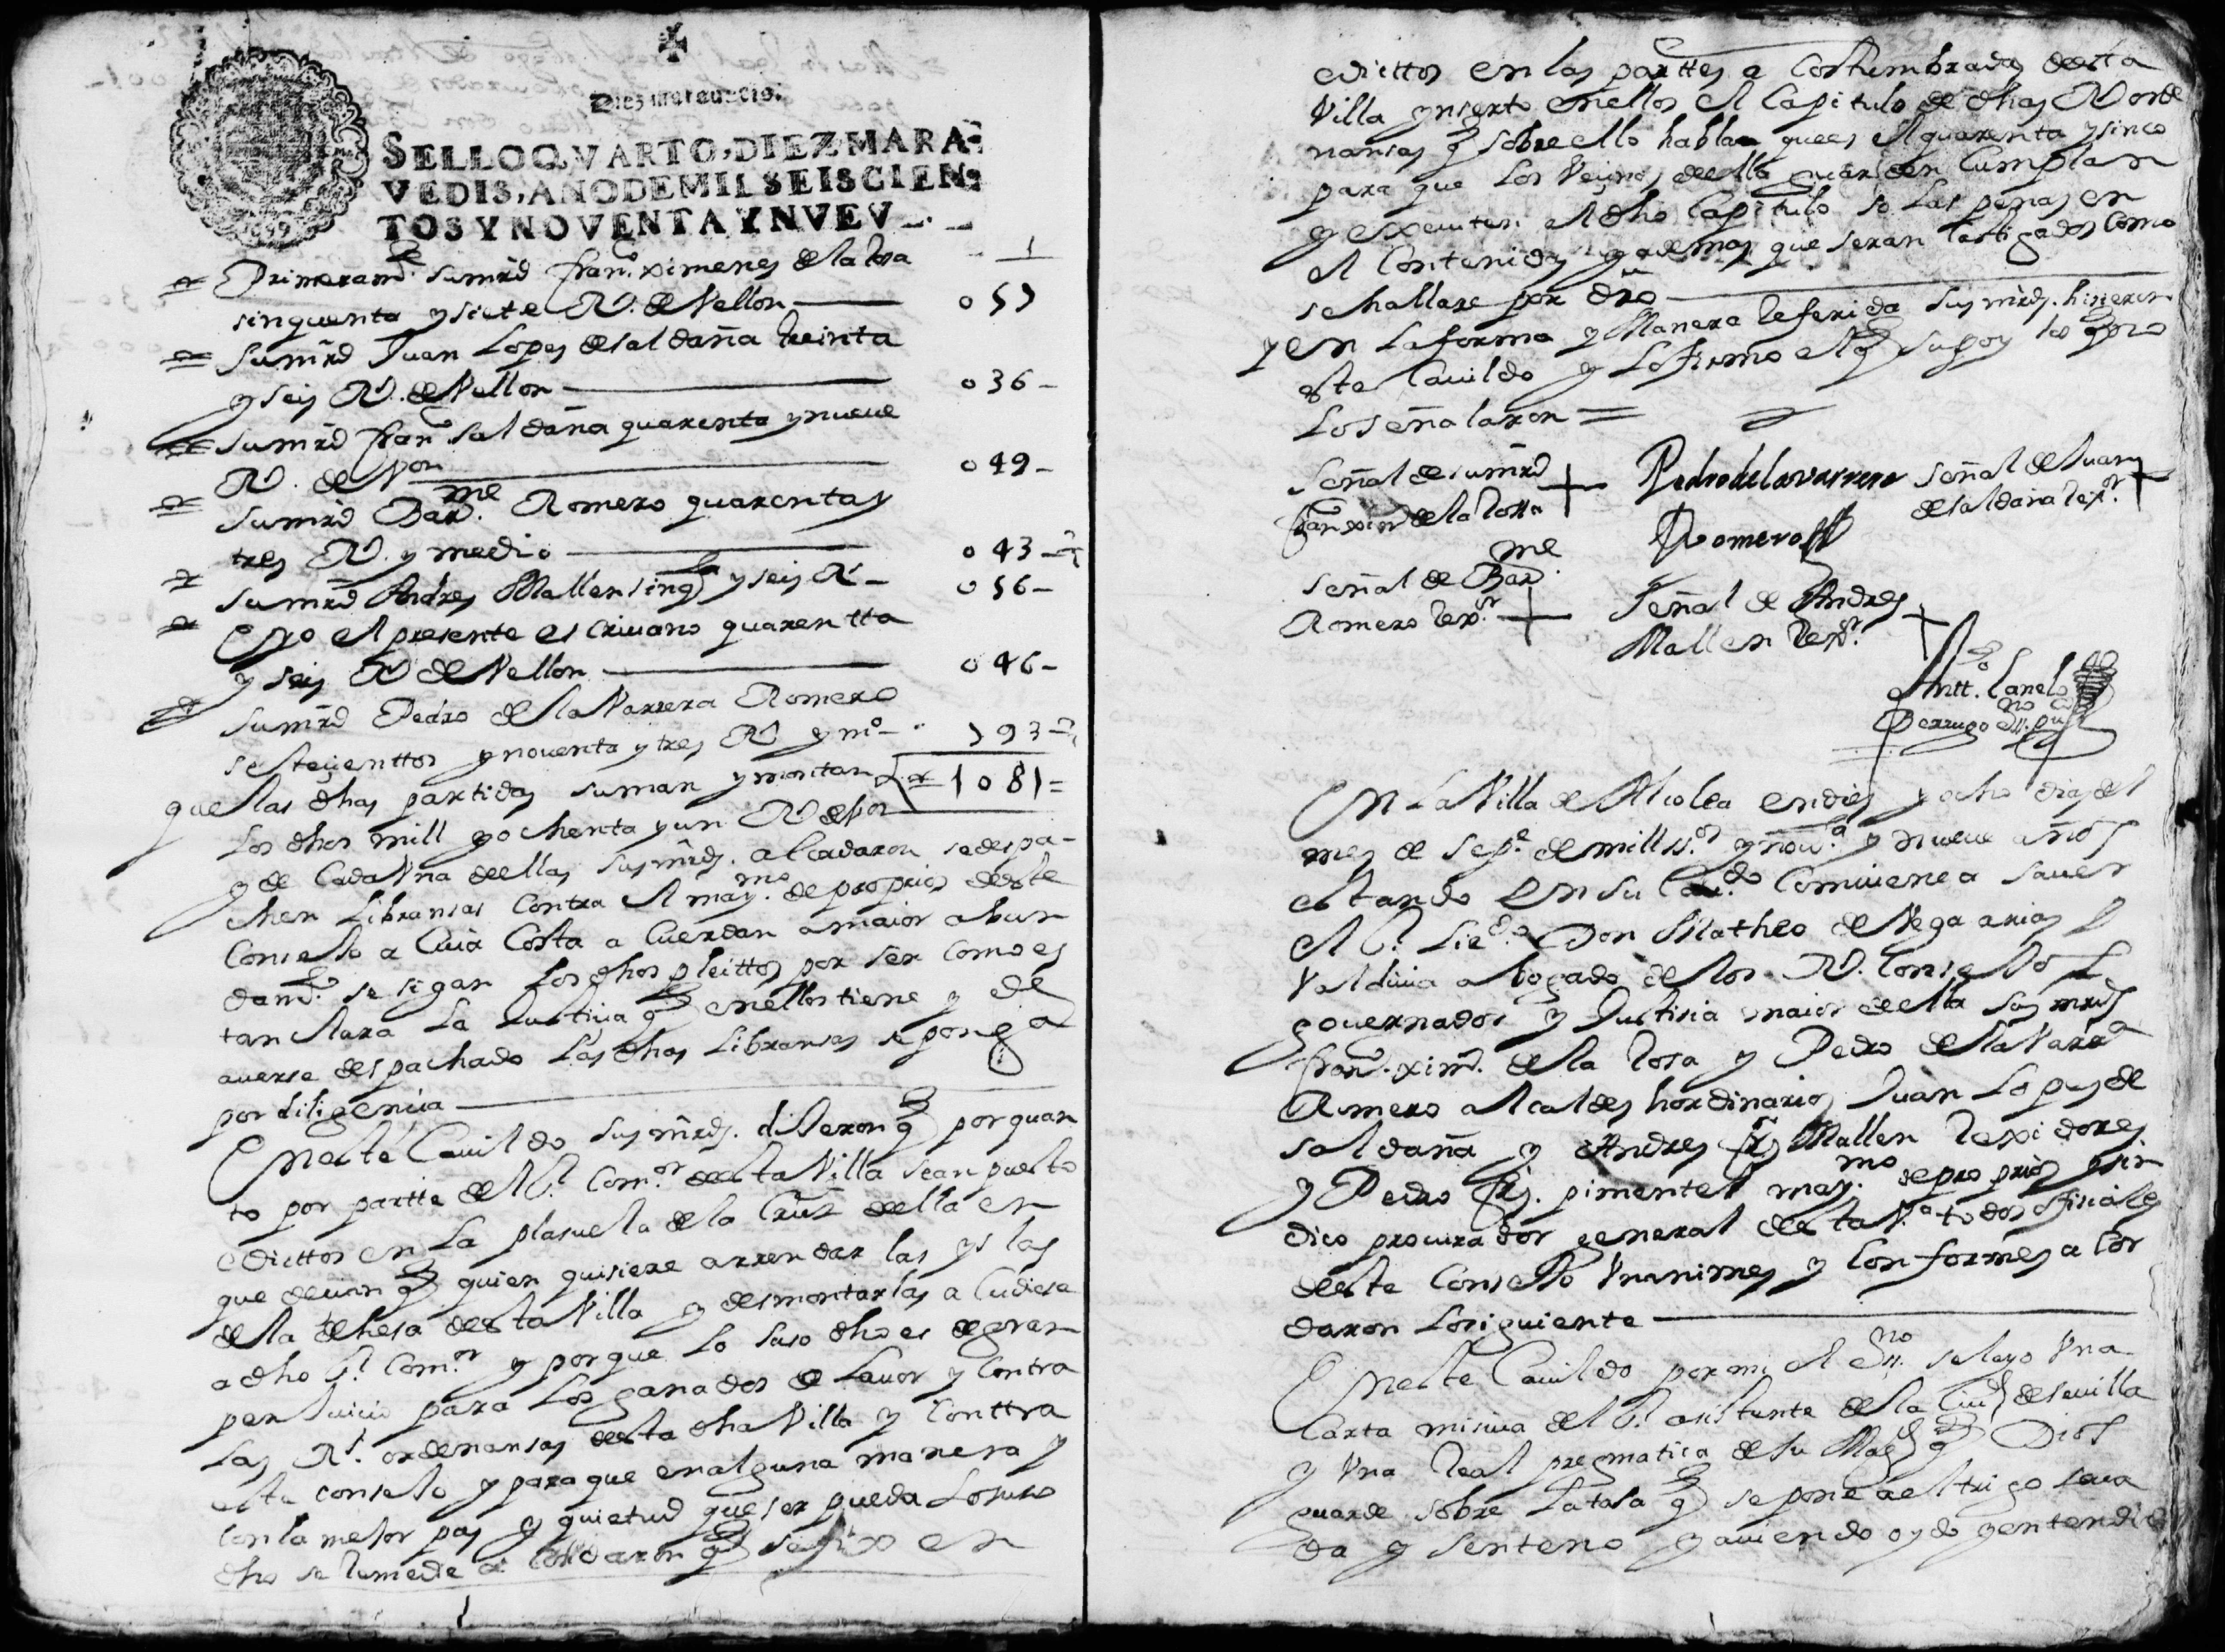 Diez marauedis.
SELLO QVARTO, DIEZ MARA-
VEDIS, AÑO DE MIL SEISCIEN-
TOS Y NOVENTA Y NVEV
Primeram.te sumrd fran.co ximenes de la rosa
sinquenta y siete Rs. de Vellon — 057
sumrd Juan Lopes de saldaña treinta
y seis Rs. de Vellon — 036 —
sumrd fran.co saldaña quarenta y nueue
Rs. de Von — 049 —
sumrd Bar.me Romero quarenta y
tres Rs. y medio — 043 —
sumrd Andres Mallen sinq.ta y seis Rs — 056 —
E yo el presente escriuano quarentta
y seis Rs de Vellon — 046 —
sumrd Pedro de la Varrera Romero
seteçienttos y nouenta y tres Rs y m.o — 793
que las dhas partidas suman y montan 1081 =
los dhos mill y ochenta y un Rs de Von
y de cada Vna dellas sus mrds. acordaron se despa-
chen libransas contra el may.mo de propios deste
Consejo a cuia costa acuerdan a maior abun
dam.to se sigan los dhos pleittos por ser como es
tan clara la Justicia q en ellos tiene y de
auerse despachado las dhas libransas se ponga
por diligencia
En este Cauildo sus mrds. dijeron q por quan
to por partte del S.r Com.or desta Villa sean puesto
edicttos en la plasuela de la Crus della en
que decian q quien quisiere arrendar las yslas
de la dehesa desta Villa y desmontarlas acudiese
a dho S.r Com.or y porque lo suso dho es de gran
perJuicio para los ganados de lauor y contra
las Rs. ordenansas desta dha Villa y conttra
este consejo y para que en alguna manera y
con la mejor pas y quietud que ser pueda lo suso
dho se remedie acordaron q se fixen
edicttos en las parttes acostumbradas desta
Villa ynserto en ellos el Capitulo de dhas Orde
nansas q sobre ello habla que es el quarenta y sinco
para que los Veçinos della guarden cumplan
y executen el dho Capitulo so las penas en
el contenidas y ademas que seran castigados como
se hallare por dro
y en la forma y Manera referida sus mrds. hisieron
este Cauildo y lo firmo el q supo y los q no
lo señalaron =
Señal de sumrd
fran.co xim.s de la rossa
Pedro de la varrera
Romero
señal de Juan
de saldaña rex.or
señal de Bar.me
Romero rex.or
Señal de Andres
Mallen rex.or
Antt.o Canelo
Berrugo ess.no pu.co
En la Villa de Alcolea en dies y ocho dias del
mes de Sep.e de mill ss.os y nou.ta y nueue años
estando en su Cau.do Comuiene a sauer
el S.r Lic.do Don Matheo de Vega arias
Valdiuia abogado de los Rs. Consejos
gouernador y Justisia maior della sus mrds
fran.co xim.s de la rosa y Pedro de la Varr.a
Romero alcaldes hordinarios Juan Lopes de
saldaña y Andres frs Mallen rexidores
y Pedro frs. pimentel may.mo de proprios y sin
dico procurador general desta V.a todos ofisiales
deste Consejo Vnanimes y Conformes acor
daron lo siguiente
En este Cauildo por mi el Ess.no se leyo Vna
Carta misiua del S.r asistente de la Ciud de seuilla
y Vna real pregmatica de su Mag.d q Dios
guarde sobre la tasa q se pone a el trigo seua
da y senteno y auiendo oydo y entendido